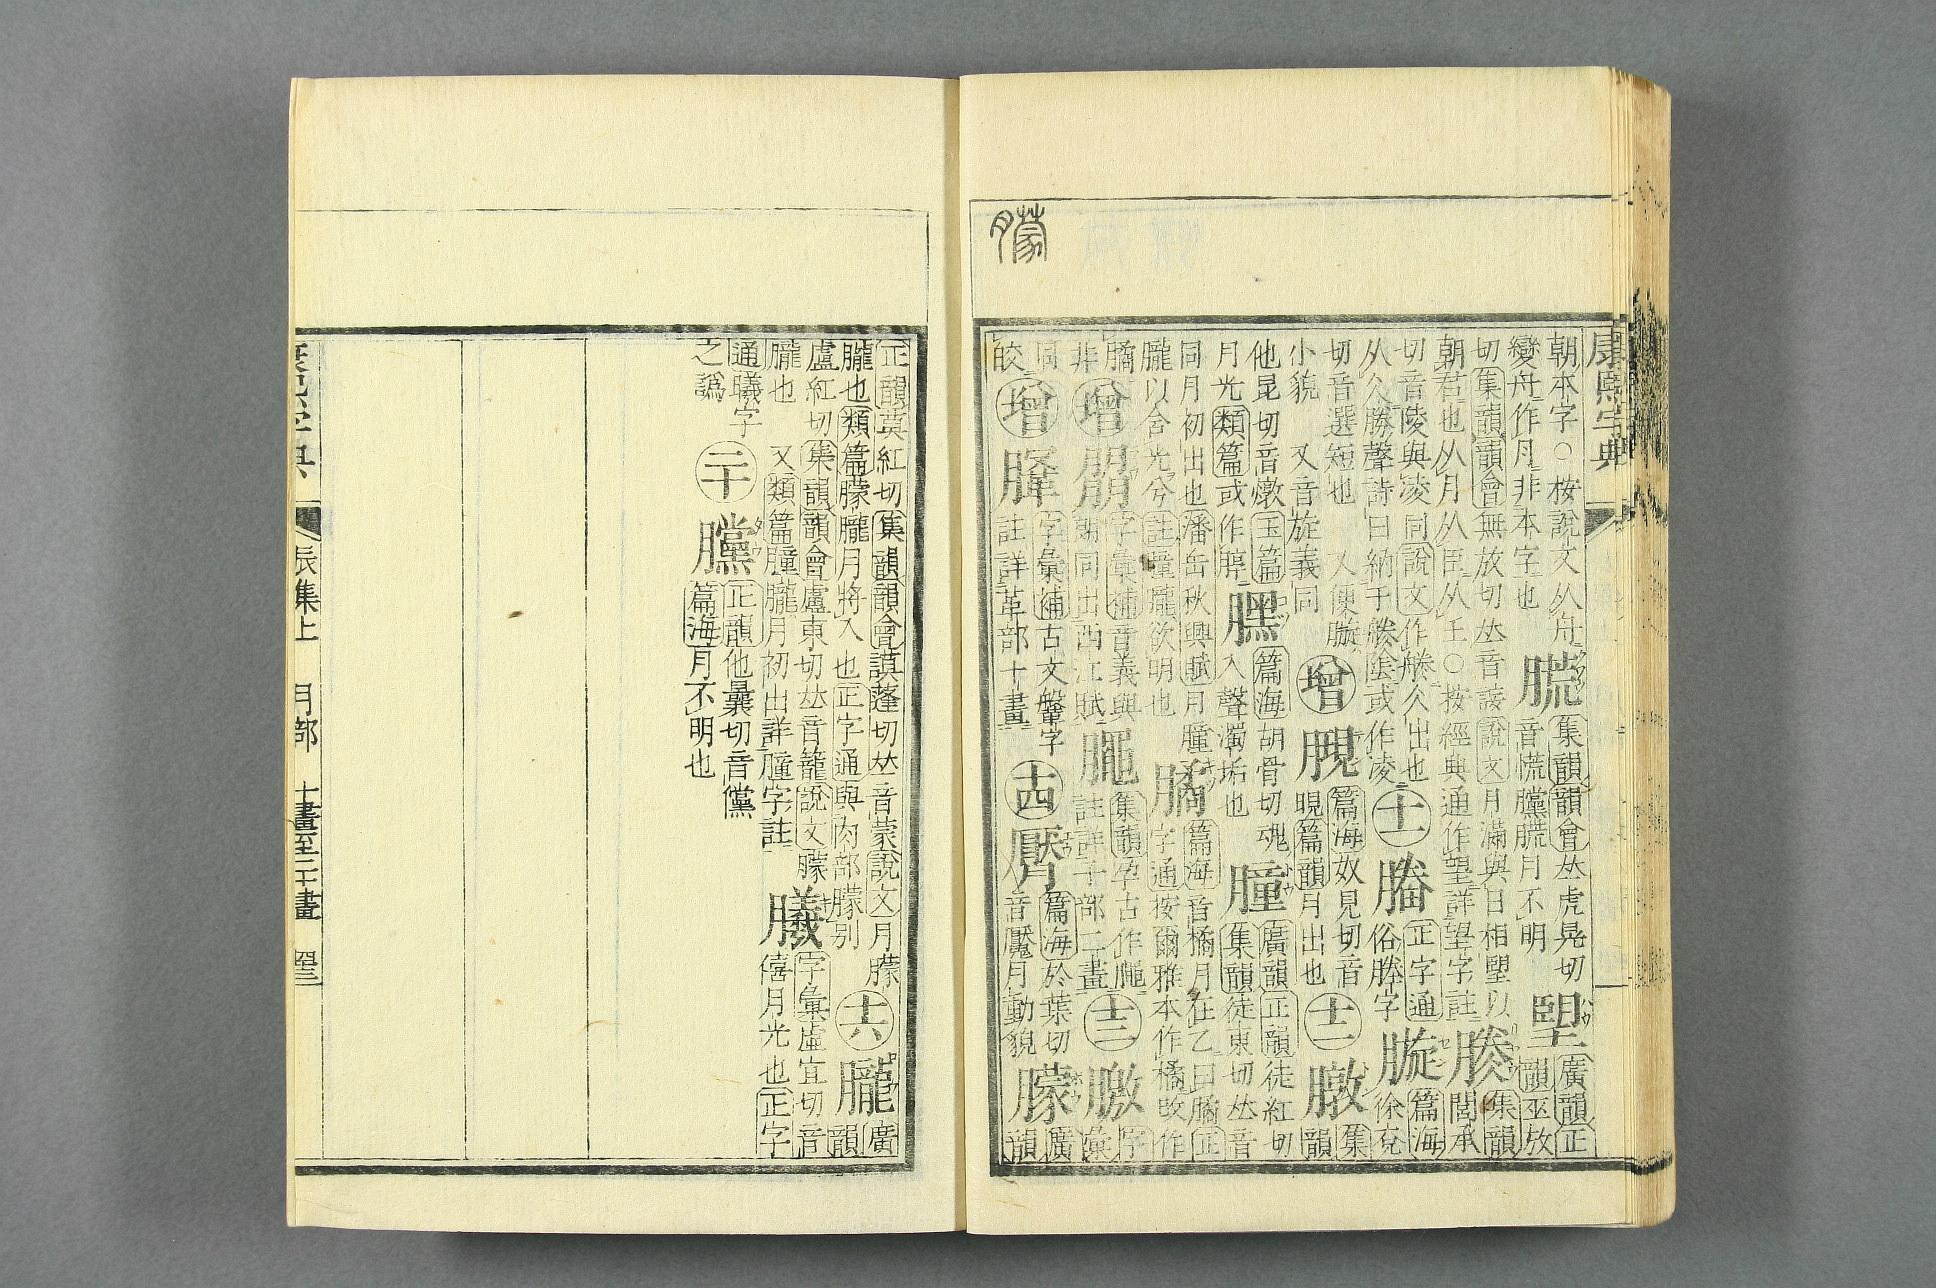 康熙字典
朝本字○按說文从舟
變舟作月非本字也
㬻
集韻韻會𠀤虎晃切
音慌矘㬻月不明
朢
廣韻正
韻巫放
切集韻韻會無放切𠀤音䛃說文月滿與日相朢以
朝君也从月从臣从壬○按經典通作望詳望字註
集韻
閭承
切音陵與凌同說文作 仌出也
从仌勝聲詩曰納于 陰或作凌
十一
正字通
俗 字
篇海
徐兗
切音選短也 又使
小貌 又音旋義同
增
篇海奴見切音
晛篇韻月出也
十二
集
韻
他昆切音燉玉篇
月光類篇或作
篇海胡骨切魂
入聲濁垢也
朣
廣韻正韻徒紅切
集韻徒東切𠀤音
同月初出也潘岳秋興賦月朣
朧以含光兮註朣朧欲明也
篇海音橘月在乙曰 正
字通按爾雅本作橘改作
非
增
字彙補音義與
朗同出西江賦
集韻孕古作
註詳子部二畫
十三
字
彙
同
皎
增
字彙補古文鞶字
註詳革部十畫
十四
篇海於葉切
音魘月動貌
朦
廣
韻
朦
正韻莫紅切集韻韻會謨蓬切𠀤音蒙說文月朦
朧也類篇朦朧月將入也正字通與肉部朦别
十六
朧
廣
韻
盧紅切集韻韻會盧東切𠀤音籠說文朦
朧也 又類篇朣朧月初出詳朣字註
字彙虛宜切音
僖月光也正字
通曦字
之譌
二十
矘
正韻他曩切音儻
篇海月不明也
康熙字典
辰集上
月部
十畫至二十畫